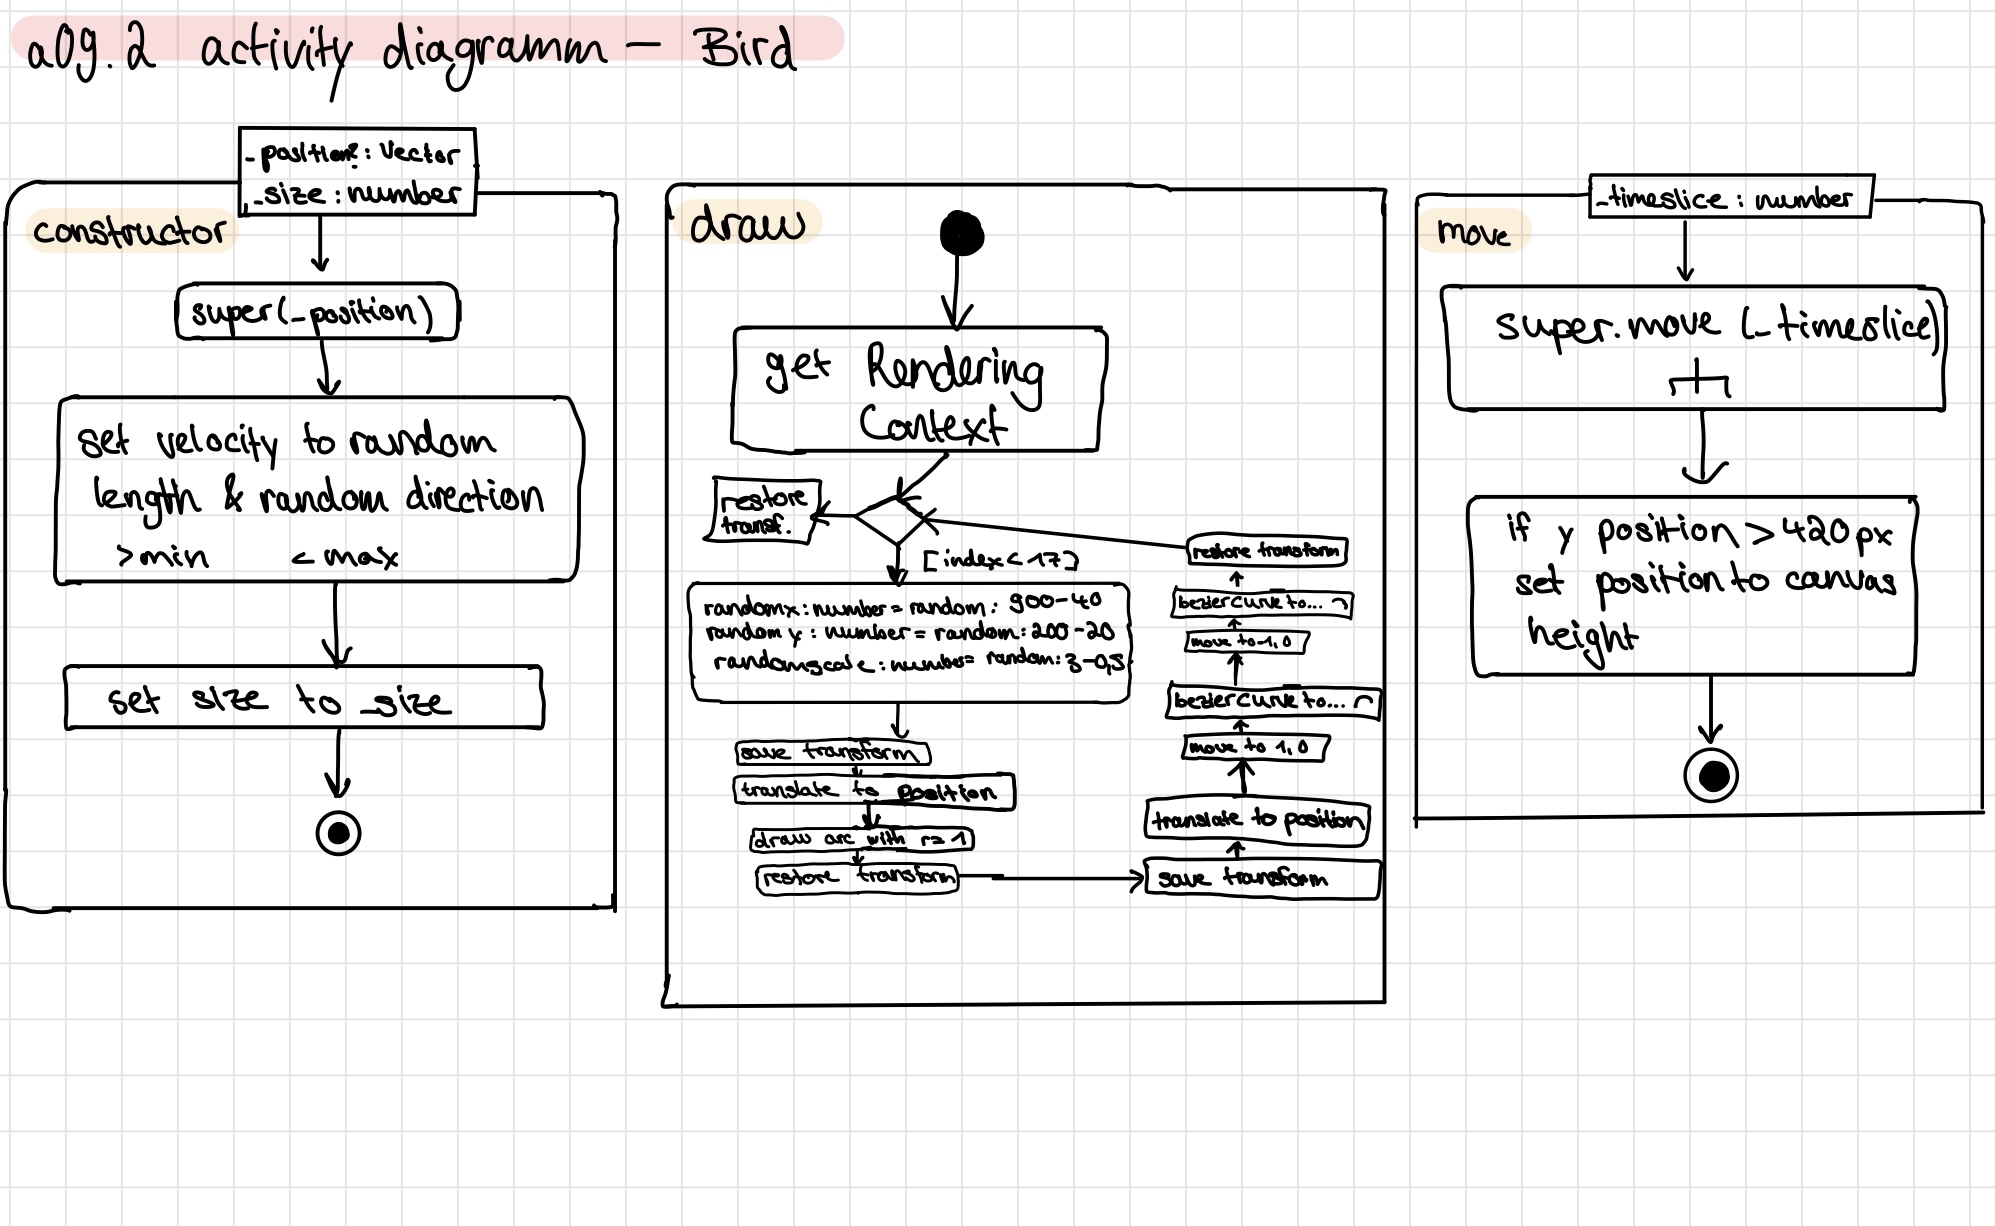 a09.2 activity diagramm - Bird
_position?: Vector
_size : number
constructor
super(_position)
set velocity to random
length & random direction
>min <max
set size to _size
draw
get Rendering
Context
restore
transf.
[index < 17]
randomx : number = random : 900-40
random y : number = random : 200-20
randomscale : number = random : 3-0,5
save transform
translate to position
draw arc with r= 1
restore transform
save transform
translate to position
move to 1,0
bezierCurve to...
move to -1,0
bezierCurve to...
restore transform
_timeslice : number
move
super.move (_timeslice)
if y position > 420px
set position to canvas
height